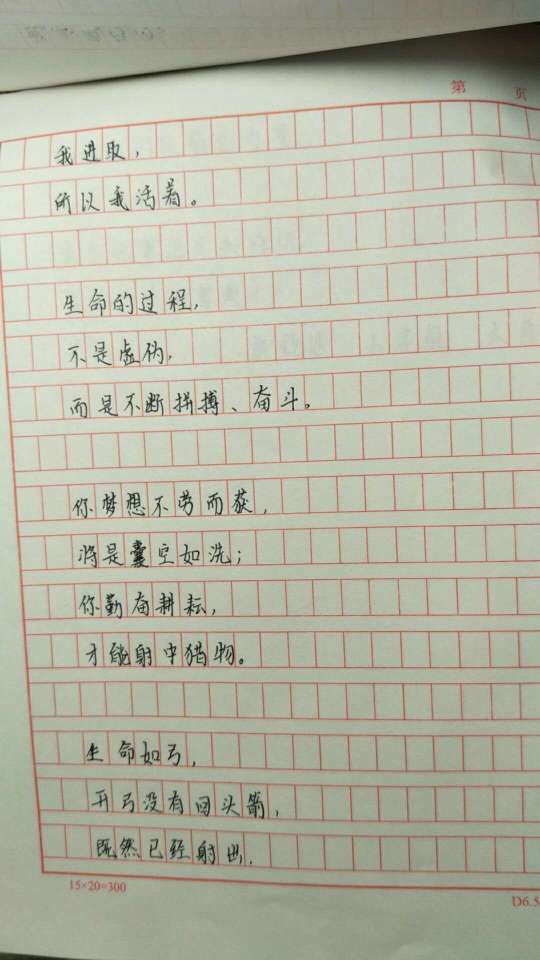 第 页
我进取，
所以我活着。
生命的过程，
不是虚伪，
而是不断拼搏、奋斗。
你梦想不劳而获，
将是囊空如洗；
你勤奋耕耘，
才能射中猎物。
生命如弓，
开弓没有回头箭，
既然已经射出，
15×20=300
D6.5